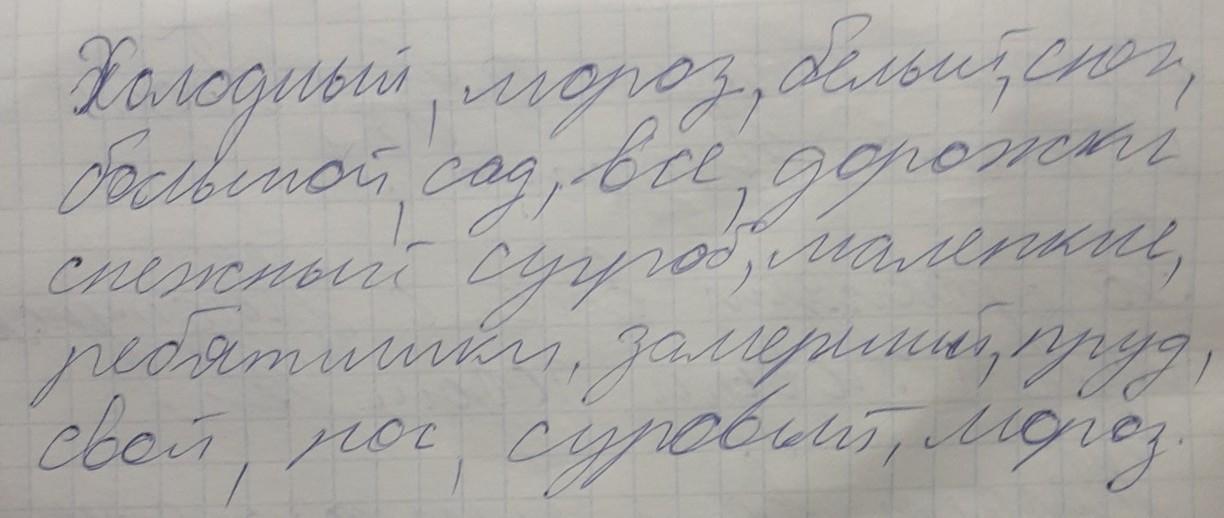 Холодный, мороз, белый, снег,
большой, сад, все, дорожки
снежный сугроб, маленкие,
ребятишки, замерший, пруд,
свой, нос, суровый, мороз.